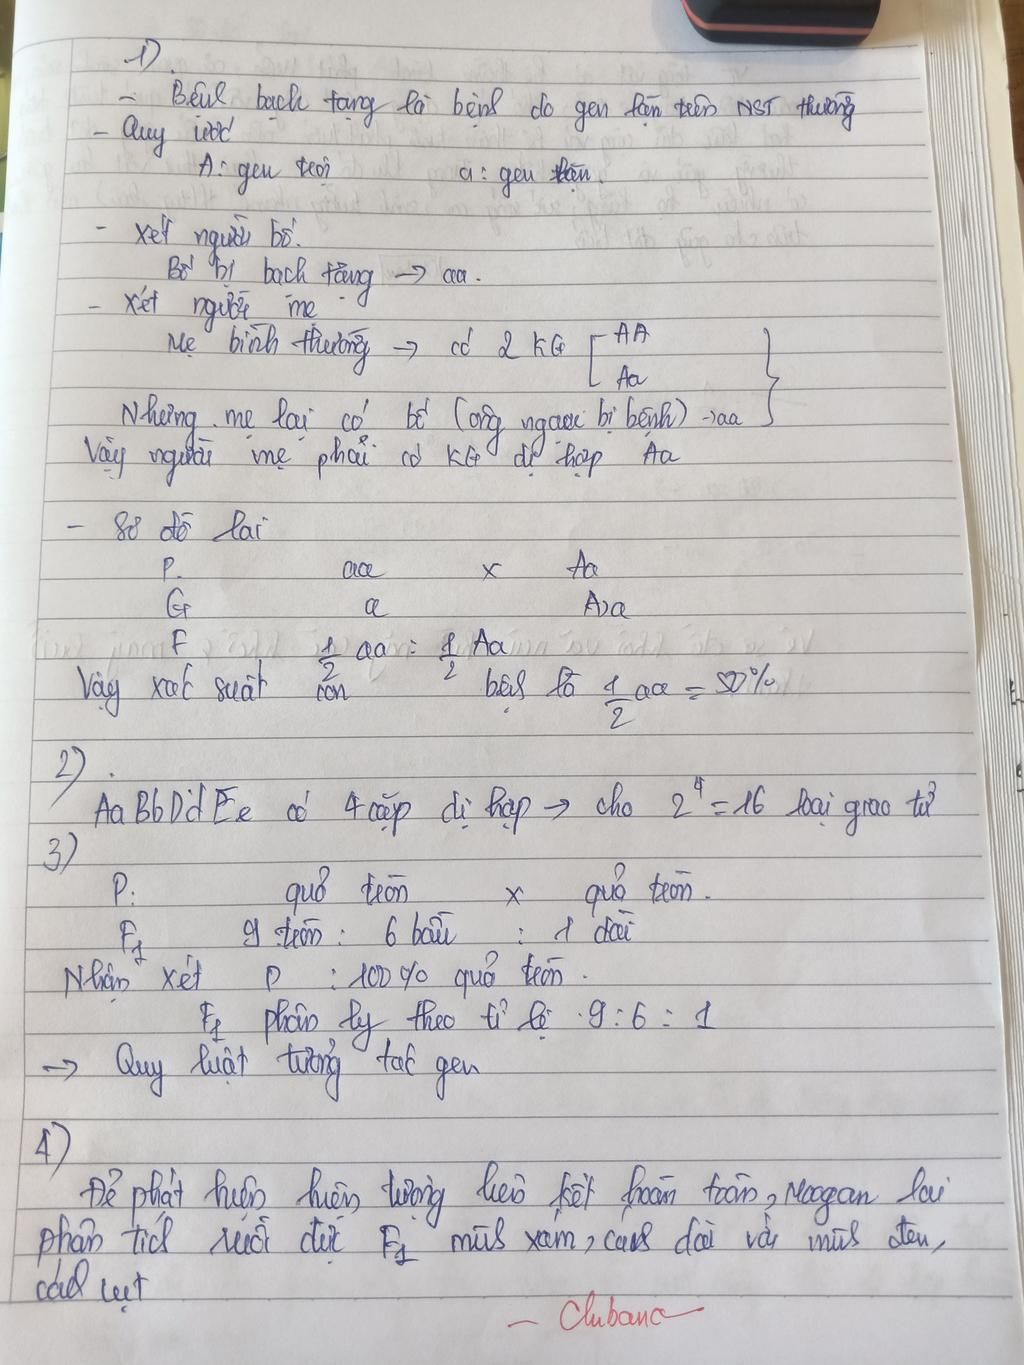 1)
- Bệnh bạch tạng là bệnh do gen lặn trên NST thường
- Quy ước
A: gen trội a: gen lặn.
- Xét người bố.
Bố bị bạch tạng → aa.
- Xét người mẹ
Mẹ bình thường → có 2 KG [ AA
Aa
Nhưng mẹ lại có bố (ông ngoại bị bệnh) → aa
Vậy người mẹ phải có KG dị hợp Aa
- Sơ đồ lai
P. aa x Aa
G a A, a
F 1/2 aa : 1/2 Aa
Vậy xác suất con bệnh là 1/2 aa = 50%
2)
AaBbDdEe có 4 cặp dị hợp → cho 2⁴ = 16 loại giao tử
3)
P: quả tròn x quả tròn.
F₁ 9 tròn : 6 bầu : 1 dài
Nhận xét P : 100% quả tròn.
F₁ phân ly theo tỉ lệ 9 : 6 : 1
→ Quy luật tương tác gen
4)
Để phát hiện hiện tượng liên kết hoàn toàn, Moogan lai
phân tích ruồi đực F₁ mình xám, cánh dài với mình đen,
cánh cụt
- Clubana